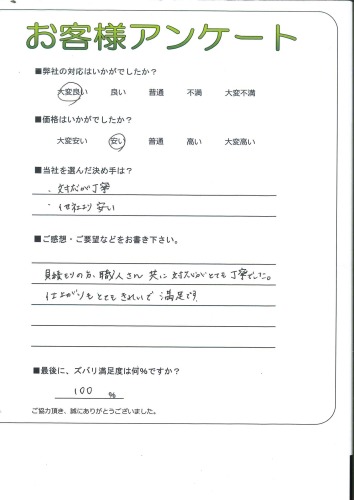 お客様アンケート
■弊社の対応はいかがでしたか？
大変良い 良い 普通 不満 大変不満
■価格はいかがでしたか？
大変安い 安い 普通 高い 大変高い
■当社を選んだ決め手は？
・対応が丁寧
・他社より安い
■ご感想・ご要望などをお書き下さい。
見積もりの方、職人さん 共に 対応がとても丁寧でした。
仕上がりもとてもきれいで 満足です
■最後に、ズバリ満足度は何%ですか？
100 %
ご協力頂き、誠にありがとうございました。